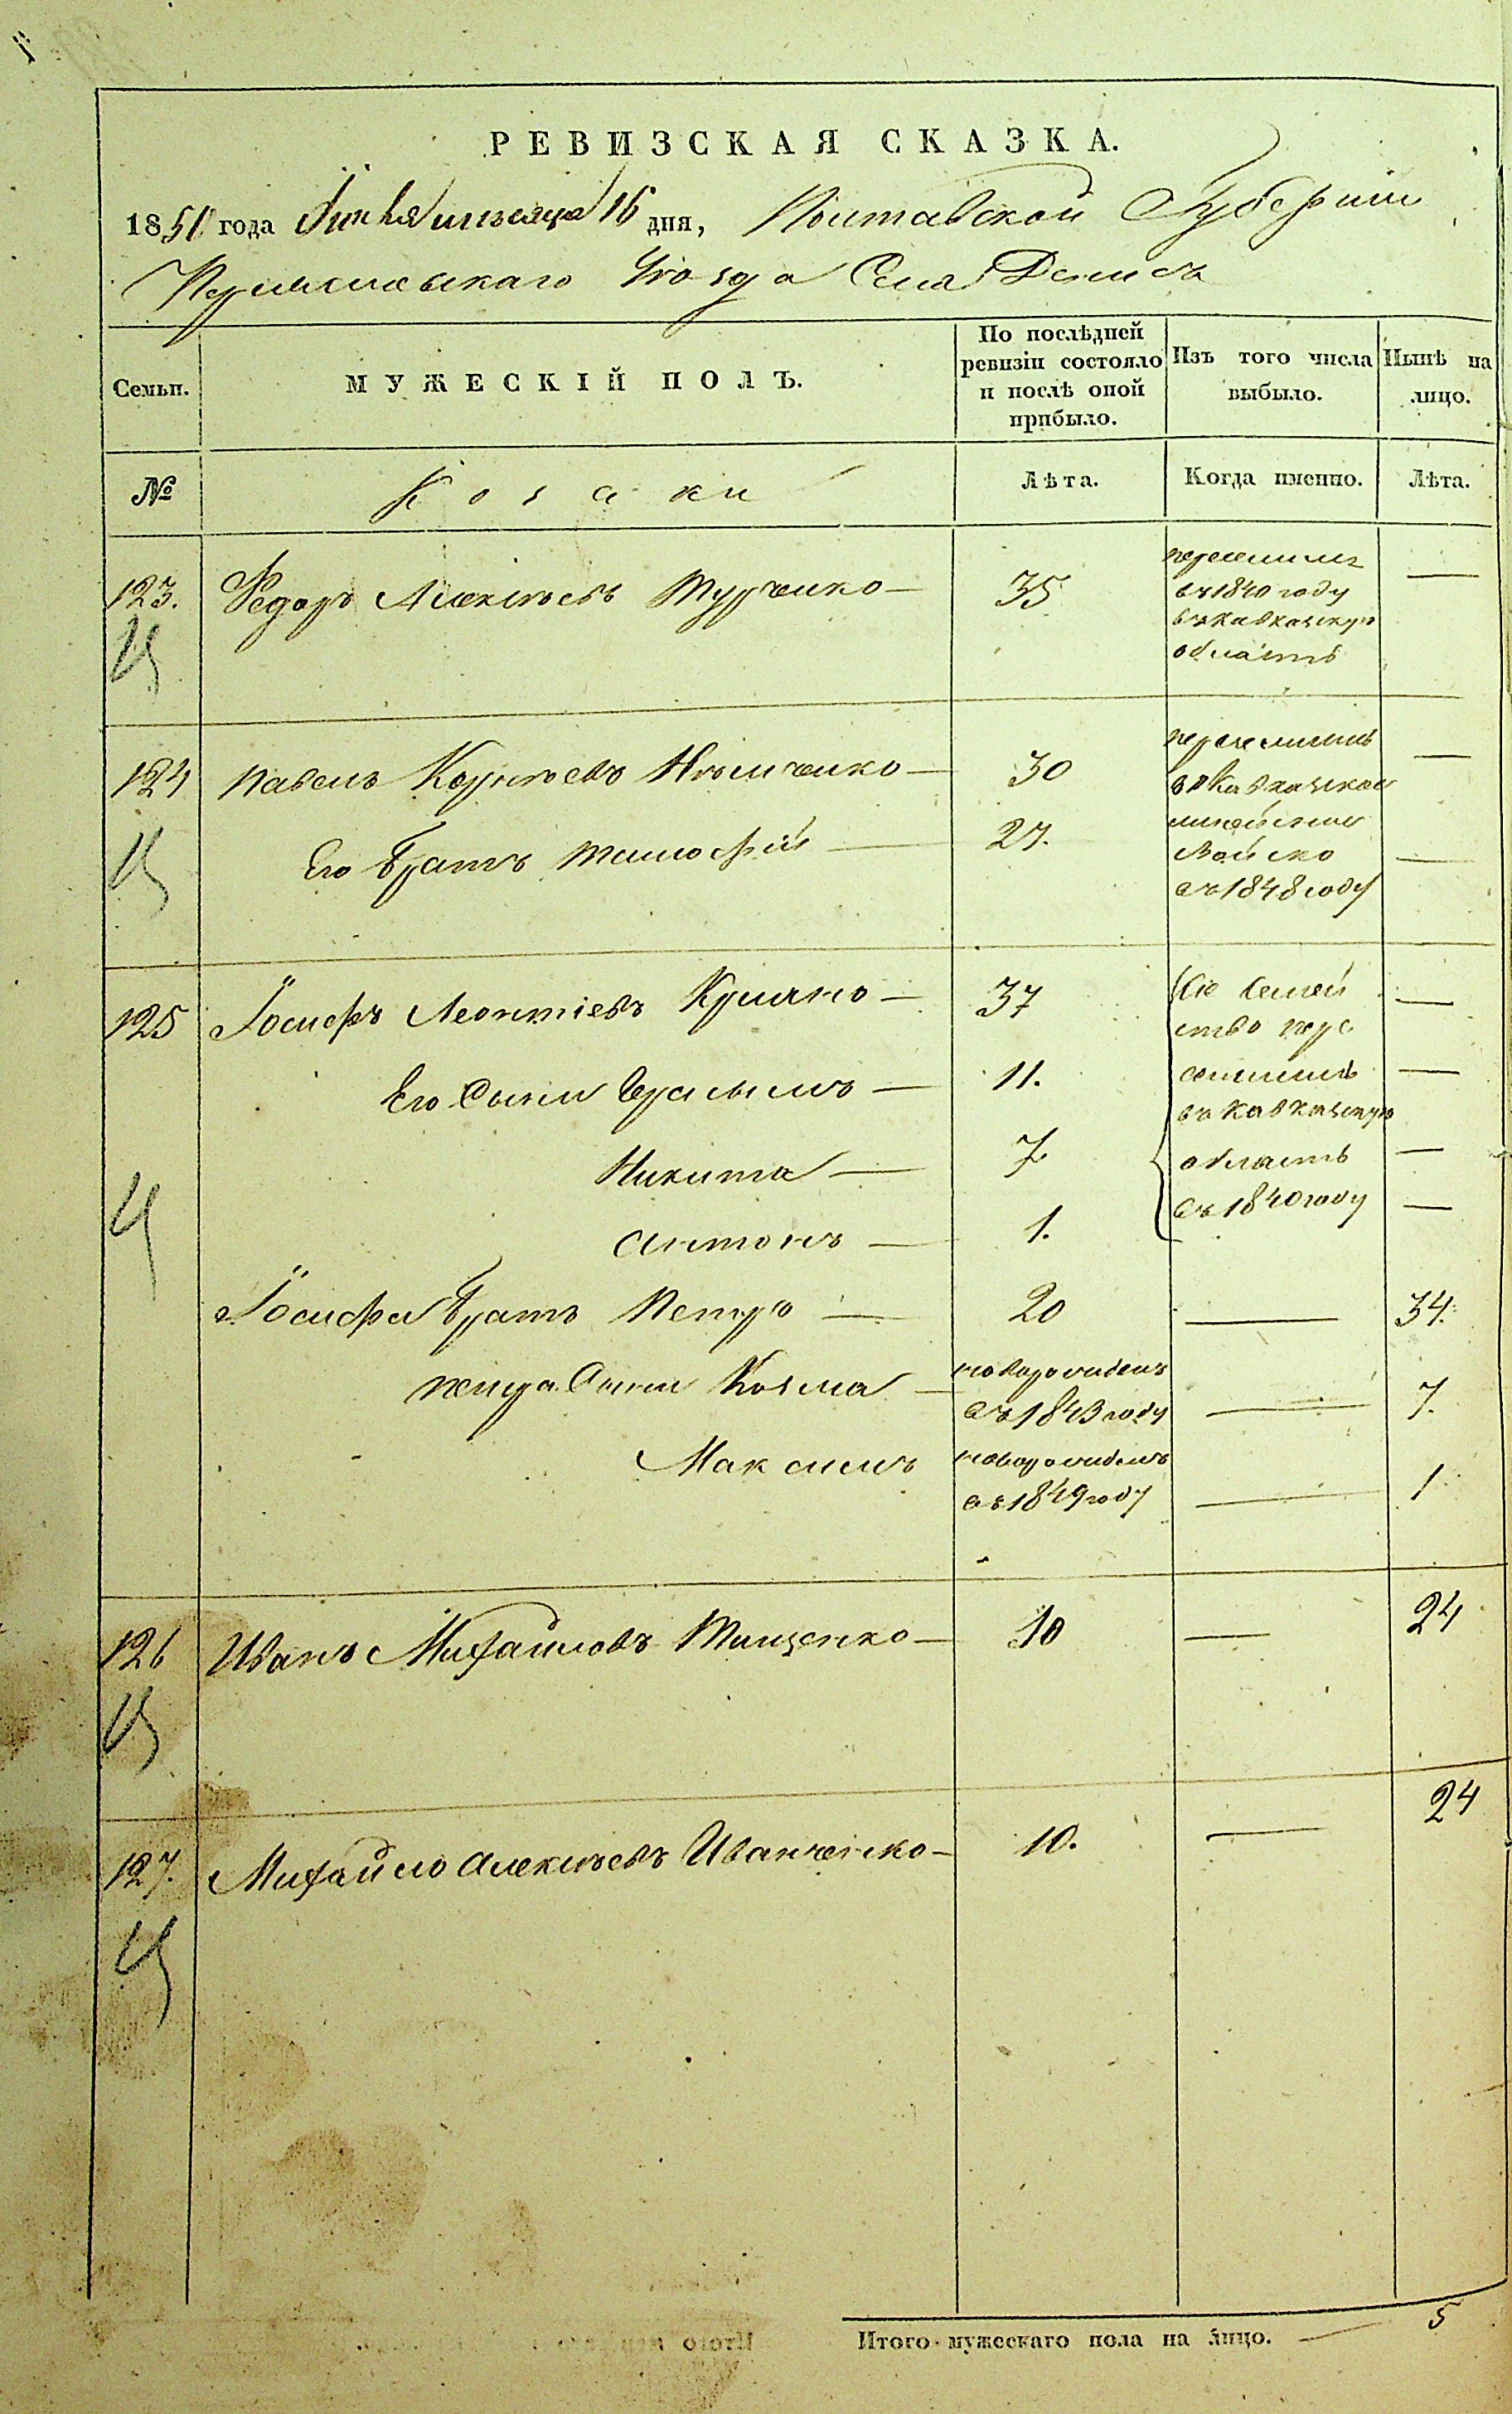 РЕВИЗСКАЯ СКАЗКА.
1851 года Июня месяца 16 дня, Полтавской Губернии
Уезда Села Денисъ
Семьи.
МУЖЕСКІЙ ПОЛЪ.
По послѣдней ревизіи состояло и послѣ оной прибыло.
Изъ того числа выбыло.
Нынѣ на лицо.
№
Козаки
Лѣта.
Когда именно.
Лѣта.
123. Федоръ Алексѣевъ Турченко — 35 —
переселились
въ 1840 году
въ Кавказскую
область
124 Павелъ Корнѣевъ Нѣмченко — 30 —
Его братъ Тимофій — 27. —
переселились
въ Кавказское
линейное
Войско
въ 1848 году
125 Іосифъ Леонтіевъ — 37 —
Его Сыни Герасымъ — 11. —
Никита — 7 —
Антонъ — 1. —
Сіе Семей
ство пере
селились
въ Кавказскую
область
въ 1840 году
Іосифа братъ Петро — 20 — 34.
Петра Сыни Козма — новорожденъ
въ 1843 году — 7.
Максимъ новорожденъ
въ 1849 году — 1
126 Иванъ Михайловъ Тищенко — 10 — 24
127. Михайло Алексѣевъ Иванченко — 10. — 24
Итого мужескаго пола на лицо. — 5